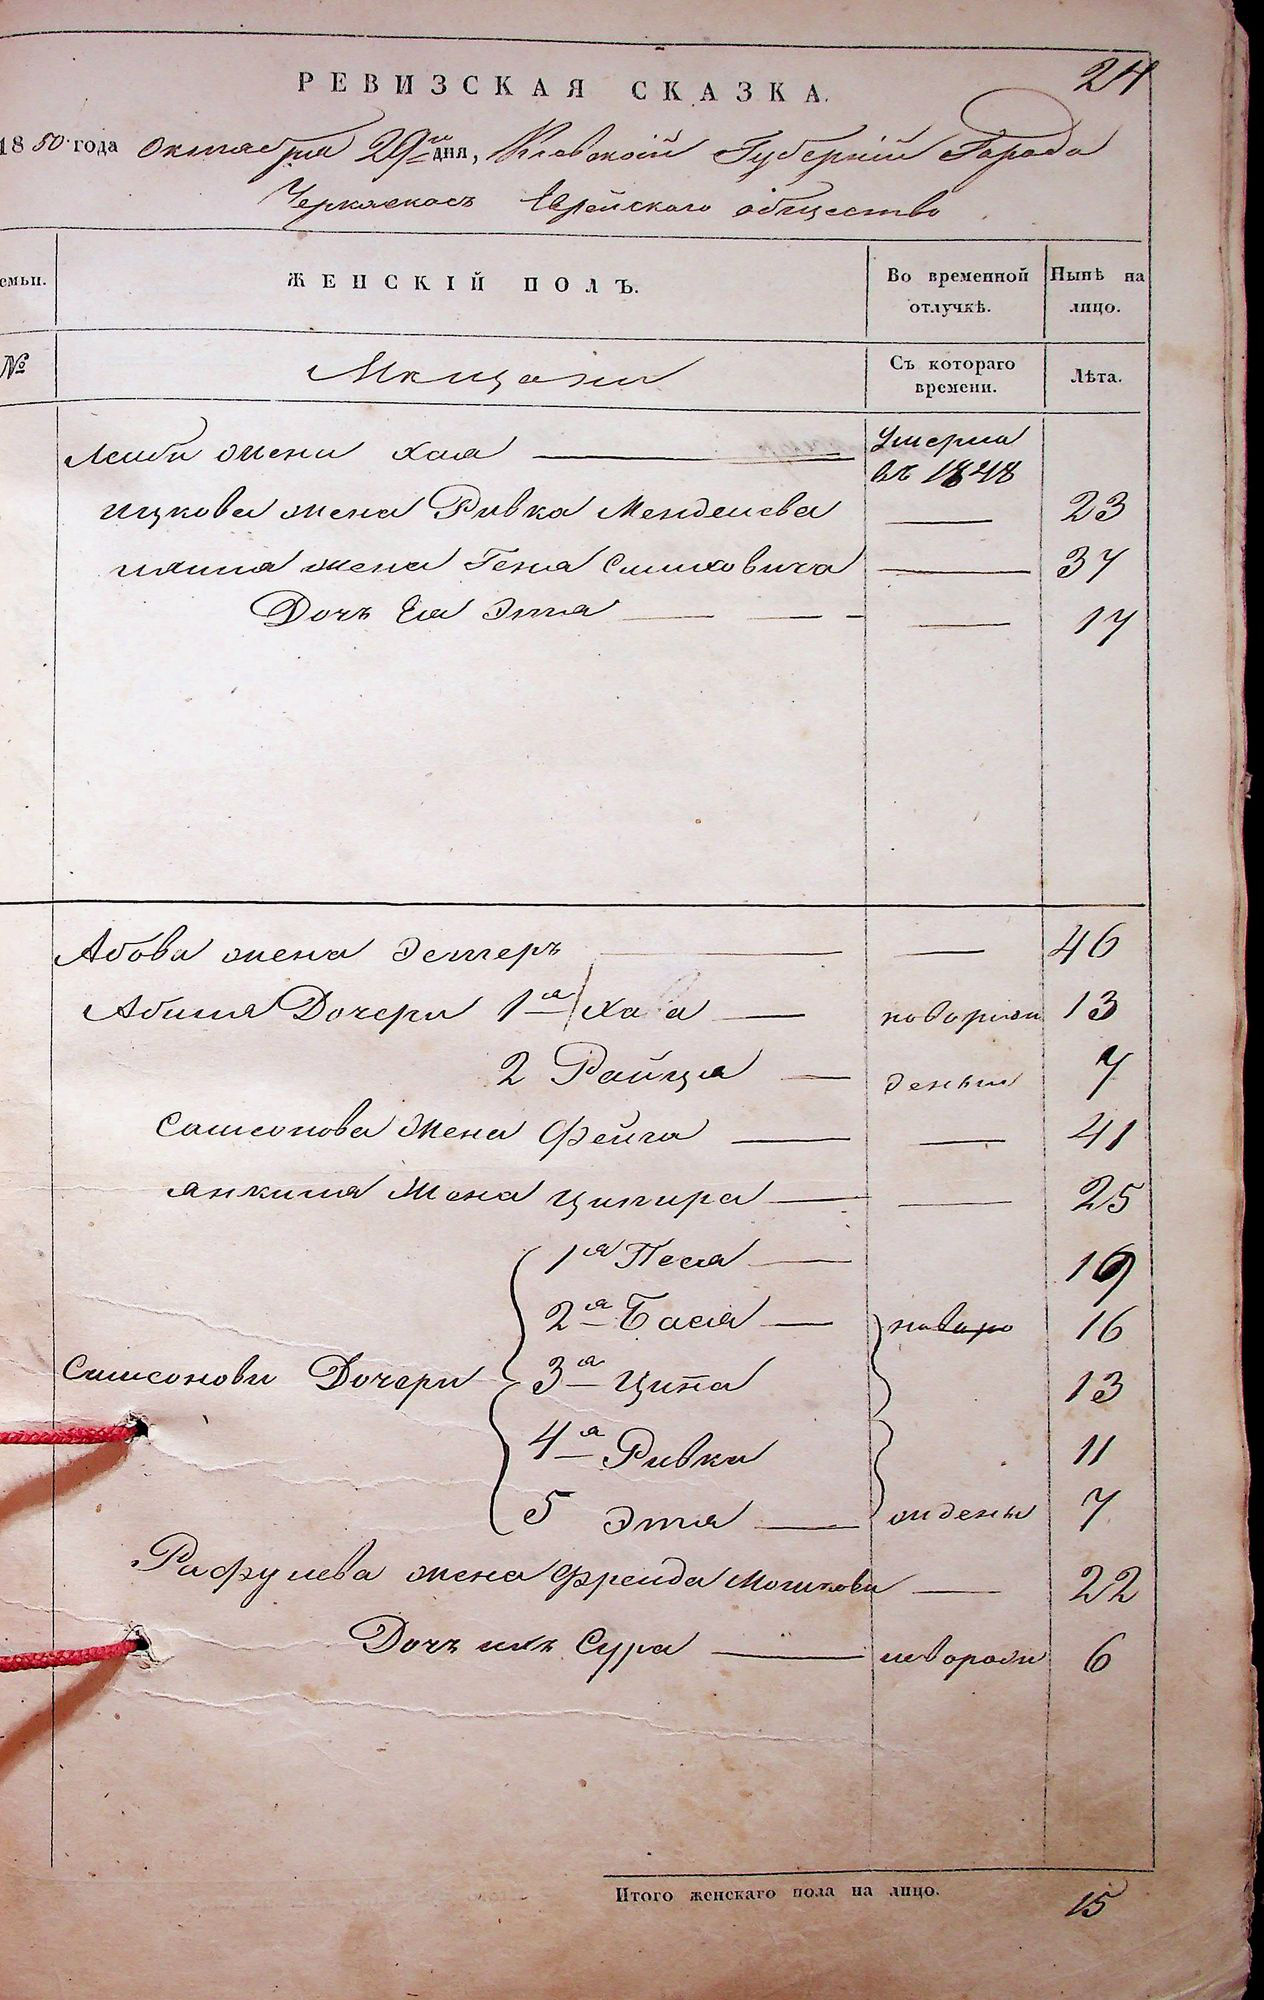 24
РЕВИЗСКАЯ СКАЗКА.
1850 года октября 29го дня, Киевской Губерніи Города
Черкаскось Еврейского общество
емьи.
ЖЕНСКІЙ ПОЛЪ.
Во временной отлучкѣ.
Нынѣ на лицо.
№
Мещани
Съ котораго времени.
Лѣта.
Лейби жена Хая умерла
въ 1848
ицкова жена Ривка Менделева 23
жена Геня Смиловича 37
Дочь Ея Этя 17
Абова жена Эстеръ 46
Абишя Дочери 1я Хава 13
2 Райця 7
Самсонова жена Фейга 41
Янкиля жена Ципира 25
1я Песя 19
2я Бася 16
Самсонови Дочери 3яЦипа 13
4я Ривки 11
5 Этя 7
Рафулева жена Фрейда Мошкови 22
Дочь ихъ Сура 6
Итого женскаго пола на лицо. 15